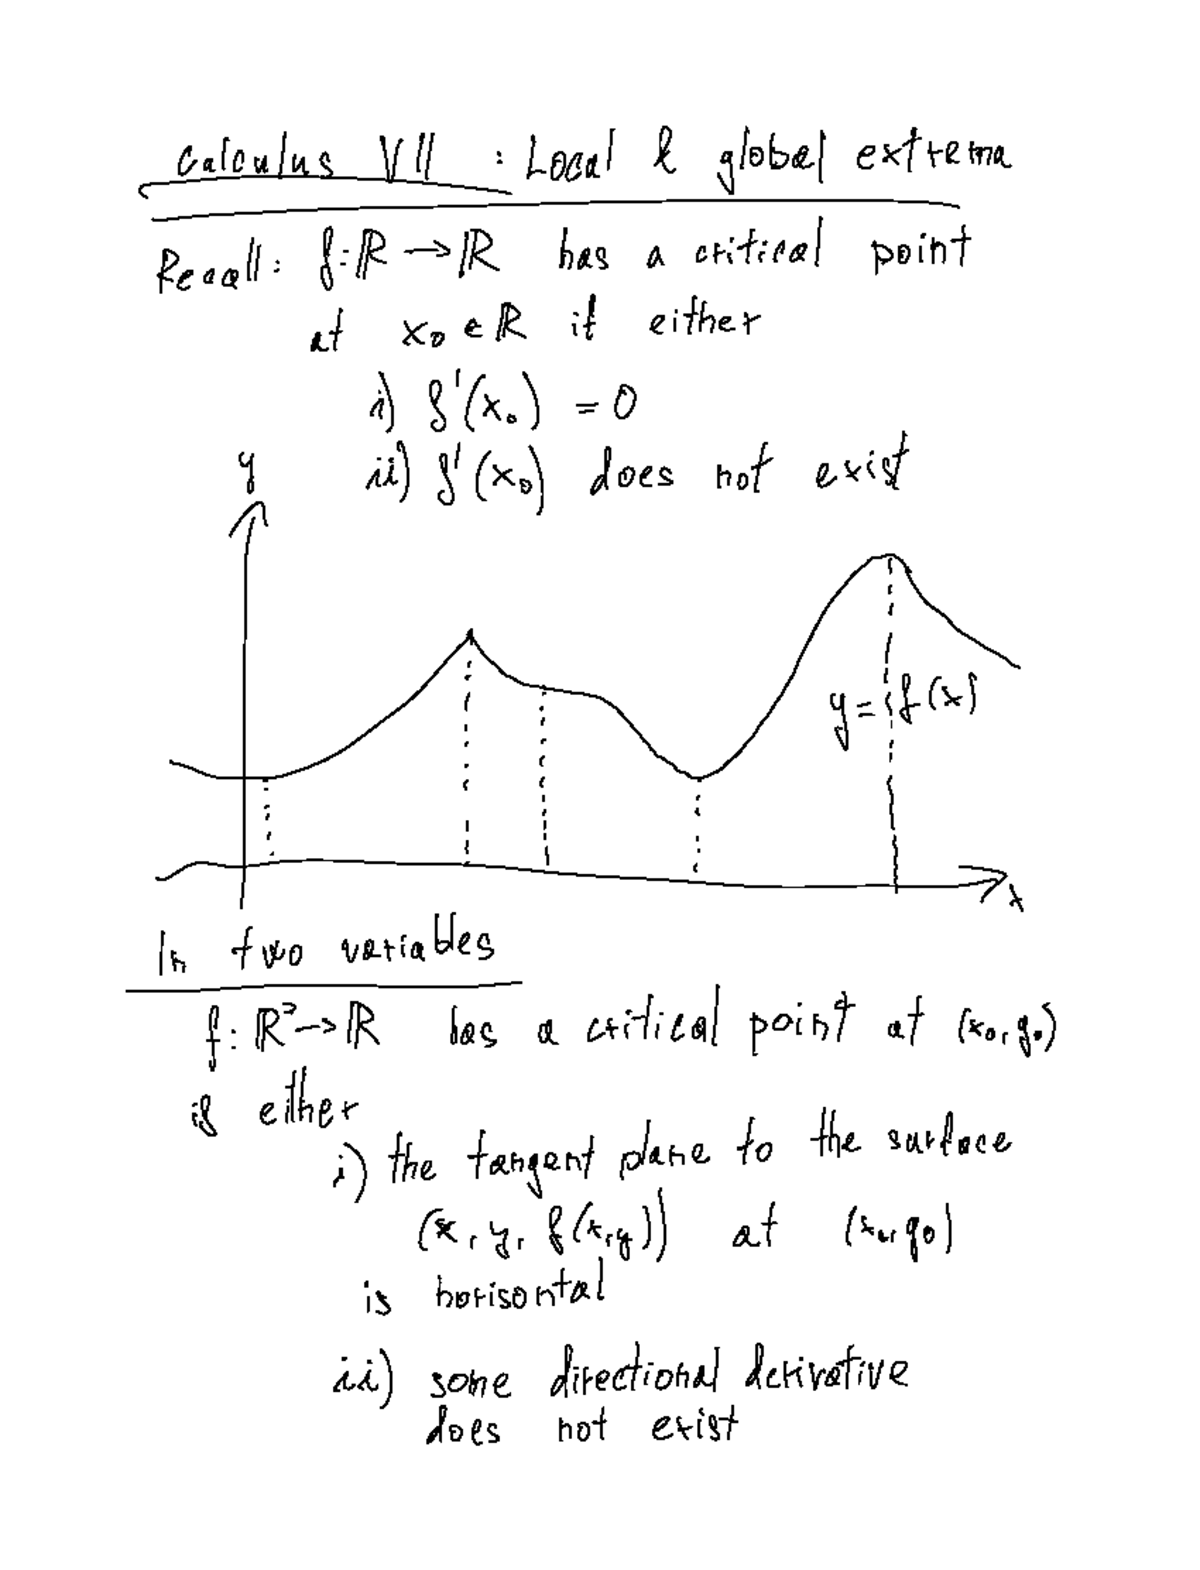 Calculus VII : Local & global extrema
Recall: f: ℝ → ℝ has a critical point
at x₀ ∈ ℝ if either
i) f'(x₀) = 0
ii) f'(x₀) does not exist
y
y = f(x)
x
In two variables
f: ℝ² → ℝ has a critical point at (x₀, y₀)
if either
i) the tangent plane to the surface
(x, y, f(x,y)) at (x₀, y₀)
is horisontal
ii) some directional derivative
does not exist